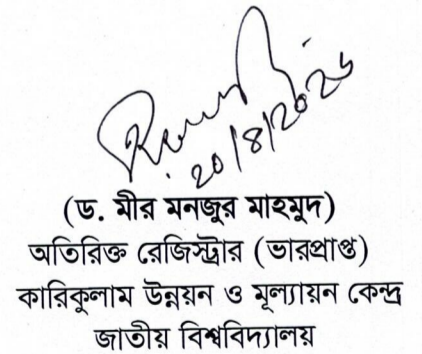 20/8/2025
(ড. মীর মনজুর মাহমুদ)
অতিরিক্ত রেজিস্ট্রার (ভারপ্রাপ্ত)
কারিকুলাম উন্নয়ন ও মূল্যায়ন কেন্দ্র
জাতীয় বিশ্ববিদ্যালয়